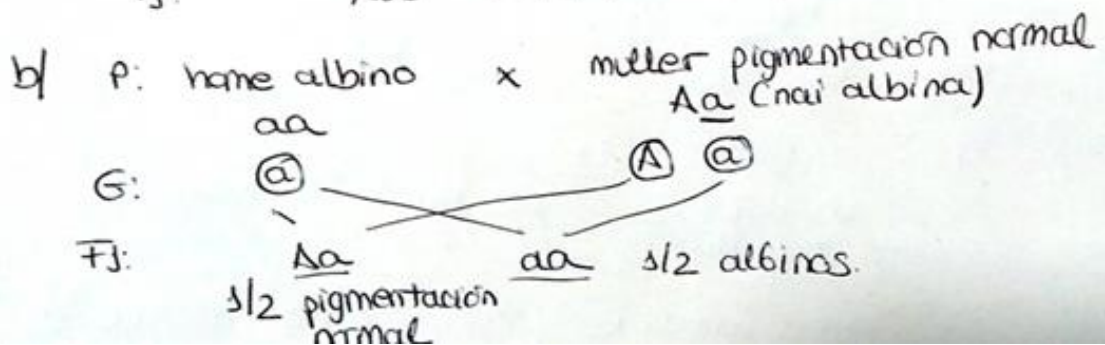 b) P: home albino x muller pigmentación normal
aa Aa (nai albina)
G: a A a
F1: Aa aa 1/2 albinos.
1/2 pigmentación
normal